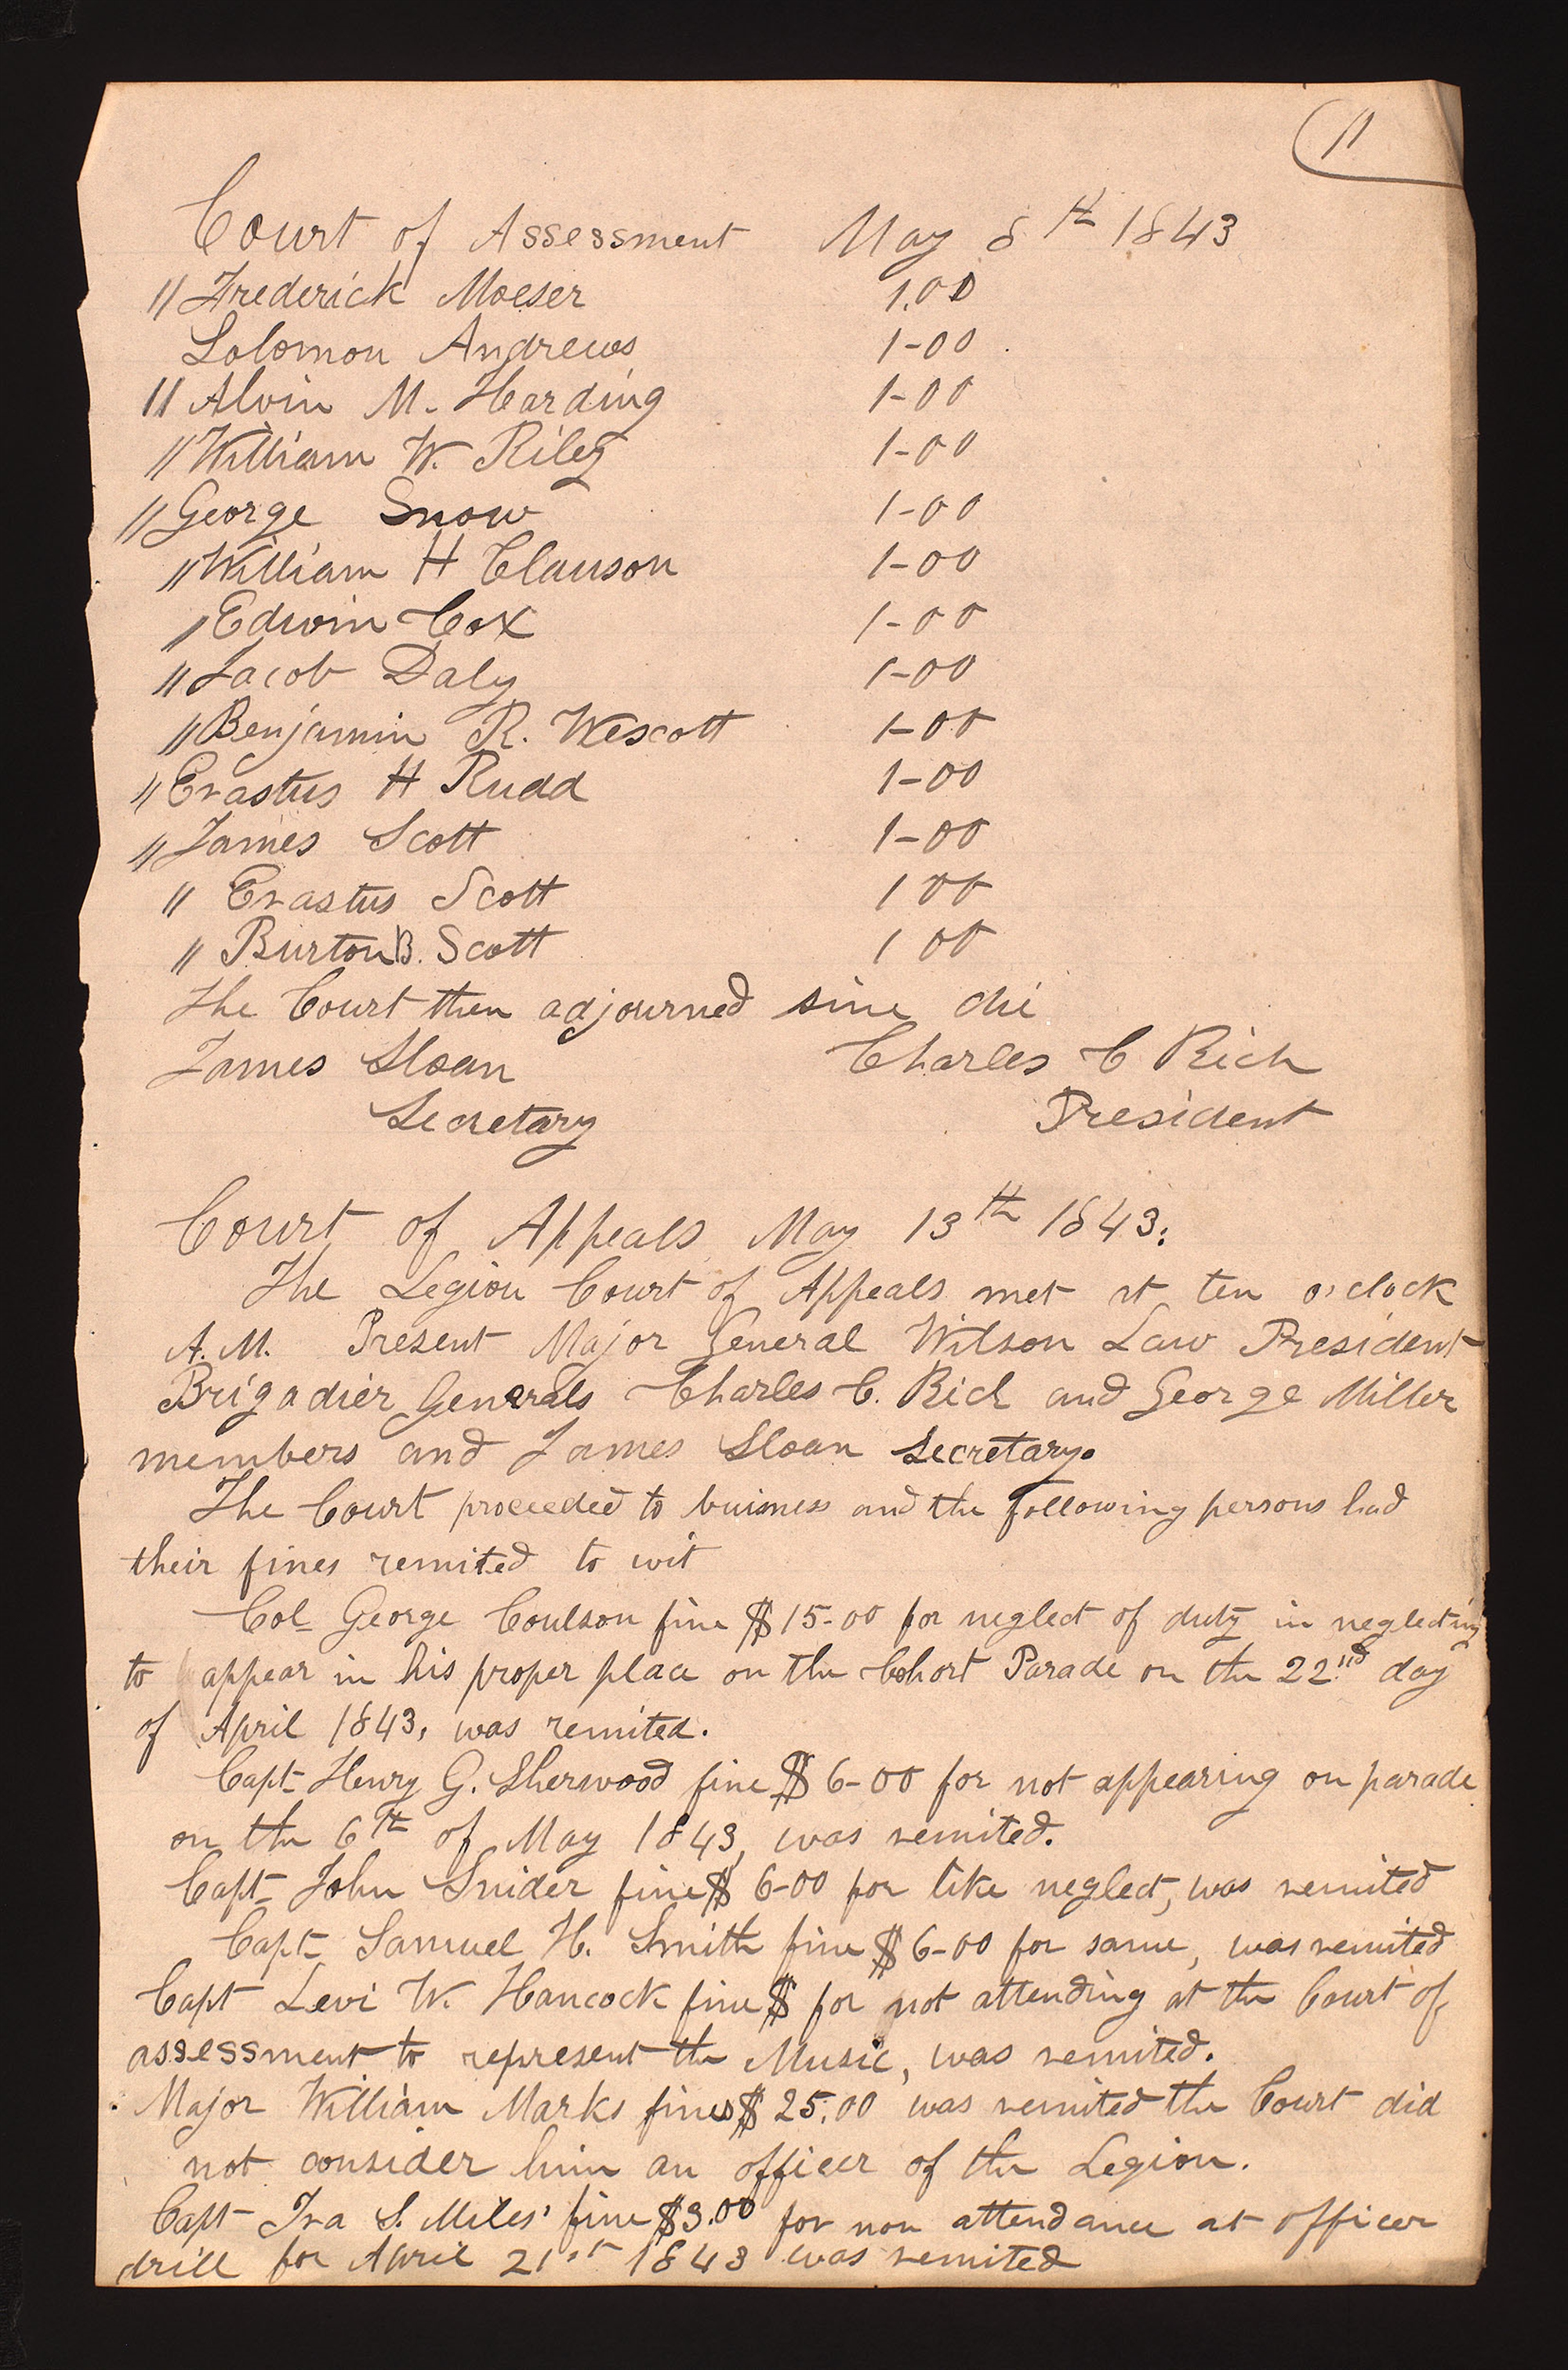 11
Court of Assessment May 8th 1843
" Frederick Moeser 1.00
Solomon Andrews 1-00
" Alvin M. Harding 1-00
" William W. Riley 1-00
" George Snow 1-00
" William H Clawson 1-00
" Edwin Cox 1-00
" Jacob Daly 1-00
" Benjamin R. Wescott 1-00
" Erastus H Rudd 1-00
" James Scott 1-00
" Erastus Scott 1 00
" Burton B. Scott 1 00
The Court then adjourned sine die
James Sloan Charles C Rich
Secretary President
Court of Appeals May 13th 1843.
The Legion Court of Appeals met at ten o'clock
A.M. Present Major General Wilson Law President
Brigadier Generals Charles C. Rich and George Miller
members and James Sloan Secretary.
The Court proceeded to buisness and the following persons had
their fines remited to wit
Col George Coulson fine $15-00 for neglect of duty in neglecting
to appear in his proper place on the Cohort Parade on the 22nd day
of April 1843, was remited.
Capt Henry G. Sherwood fine $6-00 for not appearing on parade
on the 6th of May 1843, was remited.
Capt John Snider fine $6-00 for like neglect, was remited
Capt Samuel H. Smith fine $6-00 for same, was remited
Capt Levi W. Hancock fine $ for not attending at the Court of
assessment to represent the Music, was remited.
Major William Marks fines $25.00 was remited the Court did
not consider him an officer of the Legion.
Capt Ira S. Miles' fine $3.00 for non attendance at officer
drill for April 21st 1843 was remited